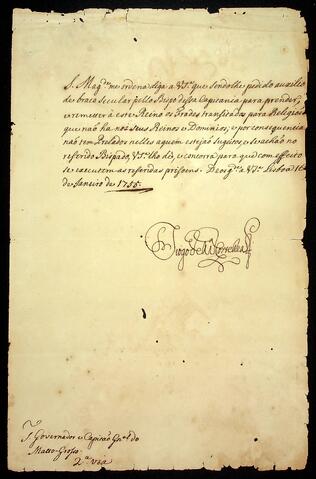 S. Mag.de me ordena diga a V S.a que sendolhe pedido auxilio
de braço secular pello Bispo dessa Capitania para prender,
e remeter á este Reino os Frades transfidas para Religioēs
que naõ ha nos seus Reinos e Dominios, e por consequencia
naõ tem Prelados nelles aquem estejaõ sugeitos, e se achaõ no
referido Bispado, V S.a lho dé, e concorra para que com effeito
se executem as referidas prizoens. Deos g.e a V S.a Lisboa 16
de Janeiro de 1755.
Diogo de M
S.r Governador e Capitaõ Gn.al do
Matto-Grosso
2.a via